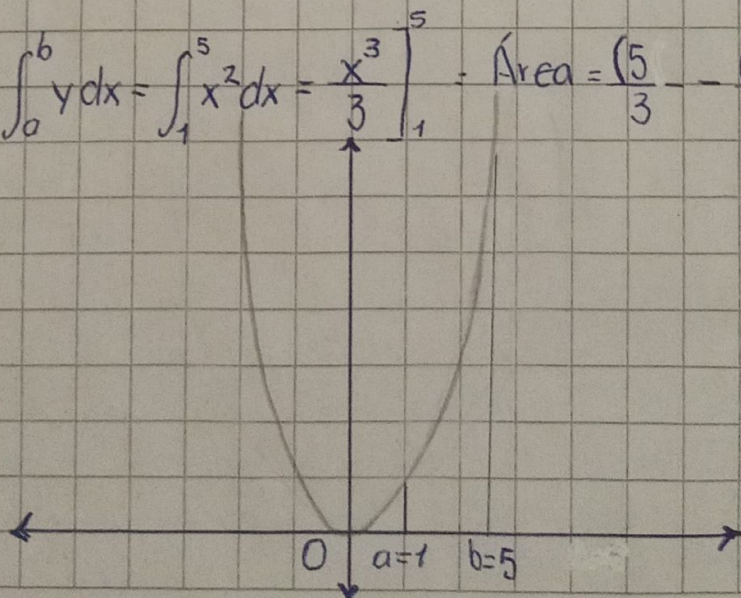 ∫ₐᵇ y dx = ∫₁⁵ x² dx = x³/3 ]₁⁵ = Área = (5/3 - -
0 a=1 b=5